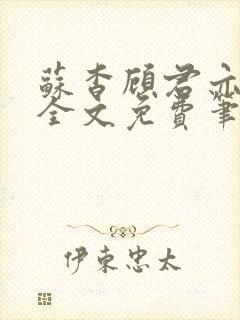 蘇杳顧君亦
全文免費筆
伊東忠太